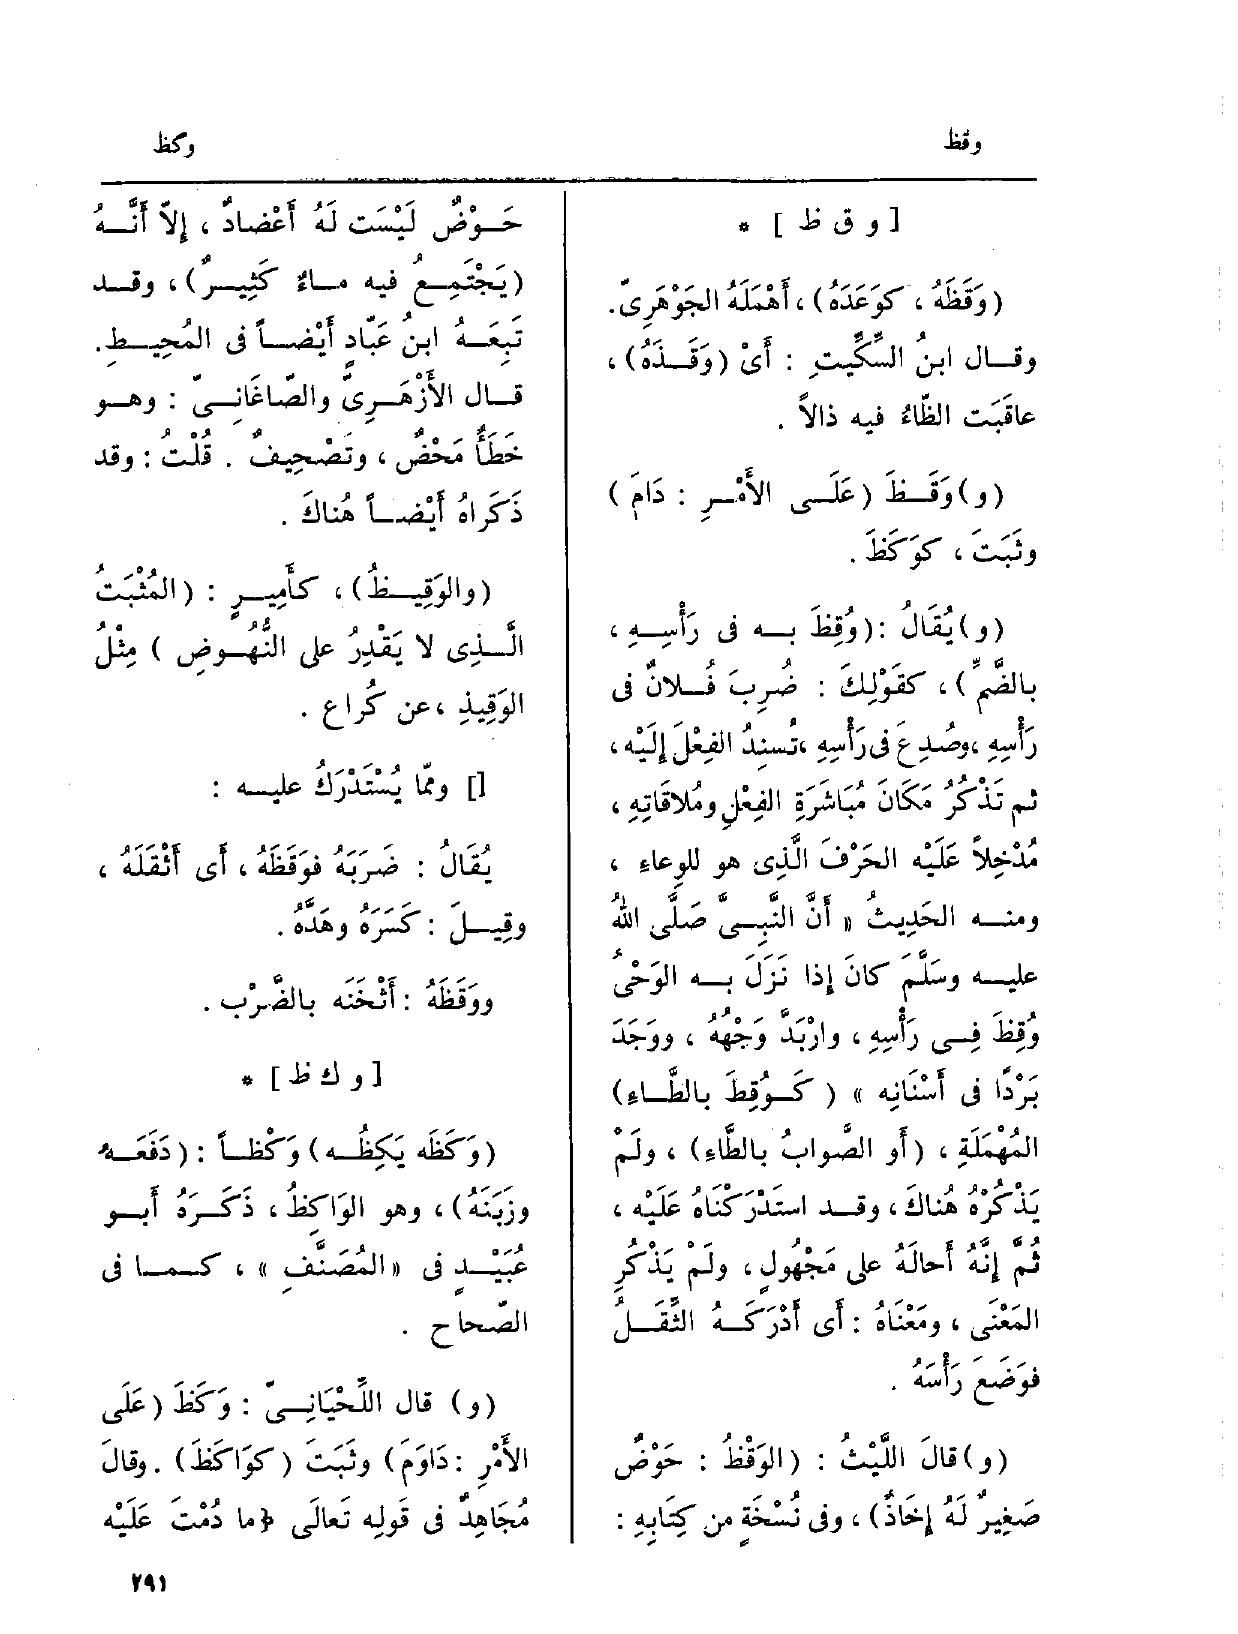 وقظ
وكظ
[ و ق ظ ] *
(وَقَظَهُ ، كوَعَدَهُ) ، أَهْمَلَهُ الجَوْهَرِىّ.
وقــال ابنُ السِّكِّيتِ : أَىْ (وَقَــذَهُ) ،
عاقَبَت الظّاءُ فيه ذالاً .
(و) وَقَــظَ (عَلَــى الأَمْــرِ : دَامَ )
وثَبَتَ ، كوَكَظَ .
(و) يُقَالُ : (وُقِظَ بــه فى رَأْسِــهِ ،
بالضَّمِّ ) ، كقَوْلِكَ : ضُرِبَ فُــلانٌ فى
رَأْسِهِ ،وصُدِعَ فى رَأْسِهِ ،تُسنِدُ الفِعْلَ إِلَيْه ،
ثم تَذْكُرُ مَكَانَ مُبَاشَرَةِ الفِعْلِ ومُلاقَاتِهِ ،
مُدْخِلاً عَلَيْه الحَرْفَ الَّذِى هو للوِعاء ،
ومنــه الحَدِيثُ « أَنَّ النَّبِــىَّ صَلَّى اللهُ
عليــه وسَلَّمَ كانَ إِذا نَزَلَ بــه الوَحْىُ
وُقِظَ فِــى رَأْسِهِ ، وارْبَدَّ وَجْهُهُ ، ووَجَدَ
بَرْدًا فى أَسْنَانِه » ( كَــوُقِطَ بالطَّــاءِ)
المُهْمَلَةِ ، (أَو الصَّوابُ بالطَّاءِ) ، ولَمْ
يَذْكُرْهُ هُنَاكَ ، وقــد استَدْرَكْنَاهُ عَلَيْه ،
ثُمَّ إِنَّهُ أَحالَهُ على مَجْهُولٍ ، ولَمْ يَذْكُرِ
المَعْنَى ، ومَعْنَاهُ : أَى أَدْرَكَــهُ الثِّقَــلُ
فوَضَعَ رَأْسَهُ .
(و) قالَ اللَّيْثُ : (الوَقْظُ : حَوْضٌ
صَغِيرٌ لَهُ إِخَاذٌ) ، وفى نُسْخَةٍ من كِتَابِهِ :
حَــوْضٌ لَيْسَت لَهُ أَعْضادٌ ، إِلاّ أَنَّــهُ
(يَجْتَمِــعُ فيه مــاءٌ كَثِيــرٌ) ، وقــد
تَبِعَــهُ ابنُ عَبّادٍ أَيْضــاً فى المُحِيــطِ.
قــال الأَزْهَــرِىّ والصّاغَانِــىّ : وهــو
خَطَأٌ مَحْضٌ ، وتَصْحِيفٌ . قُلْتُ : وقد
ذَكَراهُ أَيْضــاً هُنَاكَ .
(والوَقِيــظُ) ، كأَمِيــرٍ : (المُثْبَتُ
الَّــذِى لا يَقْدِرُ على النُّهُــوضِ ) مِثْلُ
الوَقِيذِ ،عن كُراع .
[] وممّا يُسْتَدْرَكُ عليــه :
يُقَالُ : ضَرَبَهُ فوَقَظَهُ ، أَى أَثْقَلَهُ ،
وقِيــلَ : كَسَرَهُ وهَدَّهُ .
ووَقَظَهُ : أَثْخَنَه بالضَّرْبِ .
[ و ك ظ ] *
(وَكَظَه يَكِظُــه) وَكْظــاً : (دَفَعَــه
وزَبَنَهُ) ، وهو الوَاكِظُ ، ذَكَــرَهُ أَبــو
عُبَيْــدٍ فى «المُصَنَّفِ » ، كــمــا فى
الصّحاح .
(و) قال اللِّحْيَانِــىّ : وَكَظَ (عَلَى
الأَمْرِ : دَاوَمَ) وثَبَتَ (كوَاكَظَ) . وقالَ
مُجَاهِدٌ فى قَولِه تَعالَى ﴿ما دُمْتَ عَلَيْه
٢٩١